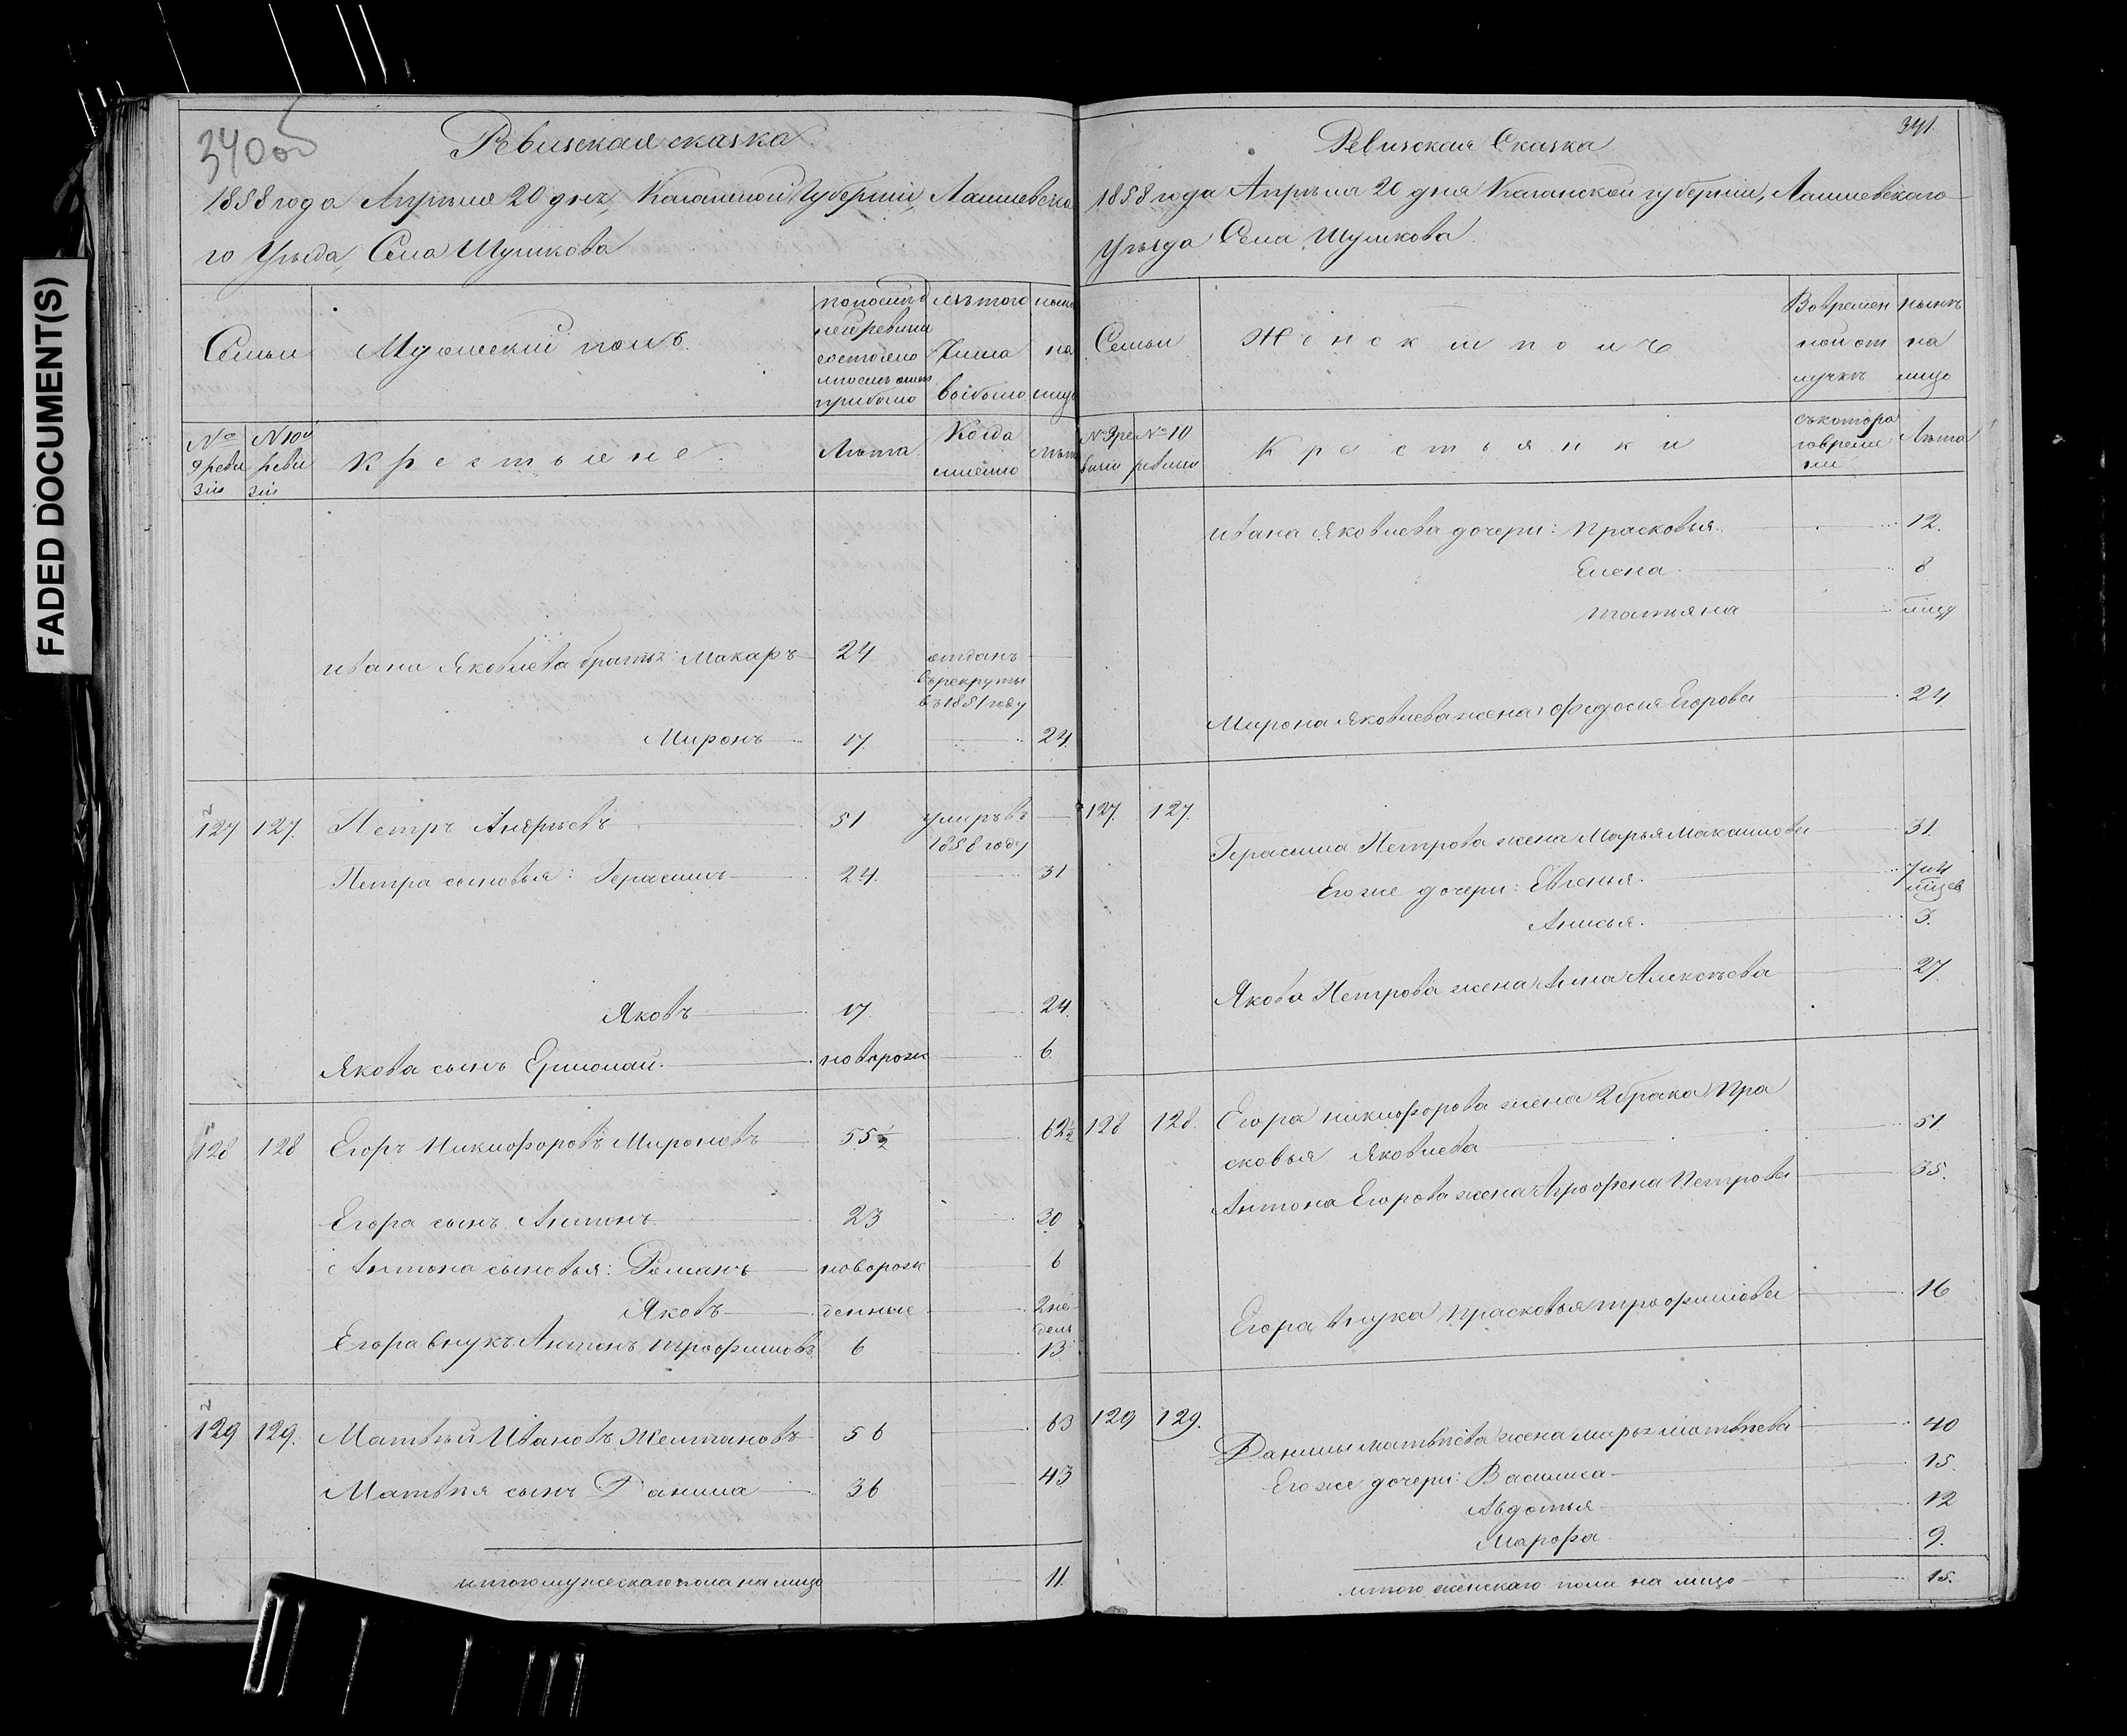 FADED DOCUMENT(S)
340об
Ревизская сказка
1858 года Апреля 20 дня, Казанской Губернии, Лаишевска
го Уѣзда, Села Шумкова
Семьи
Мужеский полъ
по послѣд
ней ревизии
состояло
и послѣ оной
прибыло
изъ того
числа
выбыло
нынѣ
на
лицо
№
9 реви
зіи
№ 10й
реви
зіи
Крестьяне.
Лѣта.
Когда
именно
Лѣта
Ивана Яковлева братья: Макаръ 24 отданъ
въ рекруты
въ 1851 году
Миронъ 17. 24.
127 127. Петръ Андреевъ 51 умеръ въ
1858 году
Петра сыновья: Герасимъ 24. 31
Яковъ 17. 24.
Якова сынъ Ермолай. новорож 6.
128 128 Егоръ Никифоровъ Мироновъ 55 1/2 62 1/2
Егора сынъ Антонъ 23 30
Антона сыновья: Романъ новорож 6
Яковъ денные 2 не
дель
Егора внукъ Антонъ Трофимовъ 6 13
129 129. Матвѣй Ивановъ Желтановъ 56 63
Матвѣя сынъ Данила 36 43
итого мужескаго пола на лицо 11.
341.
Ревизская Сказка
1858 года Апрѣля 20 дня Казанской губерніи, Лаишевскаго
Уѣзда Села Шумкова
Семьи
Женский полъ
Во времен
ной от
лучкѣ
нынѣ
на
лицо
№ 9 ре
визіи
№ 10
ревизіи
Крестьянки
съ котора
го време
ни
Лѣта
Ивана Яковлева дочери: Прасковья. 12.
Елена. 8
Татьяна
Мирона Яковлева жена Федосья Егорова 24
127. 127.
Герасима Петрова жена Марья Максимова 31.
Его же дочери: Евгенья.
Анисья. 3.
Якова Петрова жена Анна Алексѣева 27.
128 128. Егора Никифорова жена 2 брака Пра
сковья Яковлева 51
Антона Егорова жена Агрофена Петрова 35.
Егора внука Прасковья Трофимова 16
129 129.
Данилы Матвѣева жена Марья Матвѣева 40
Его же дочери: Василиса 15.
Авдотья 12
Марфа 9.
итого женскаго пола на лицо 15.